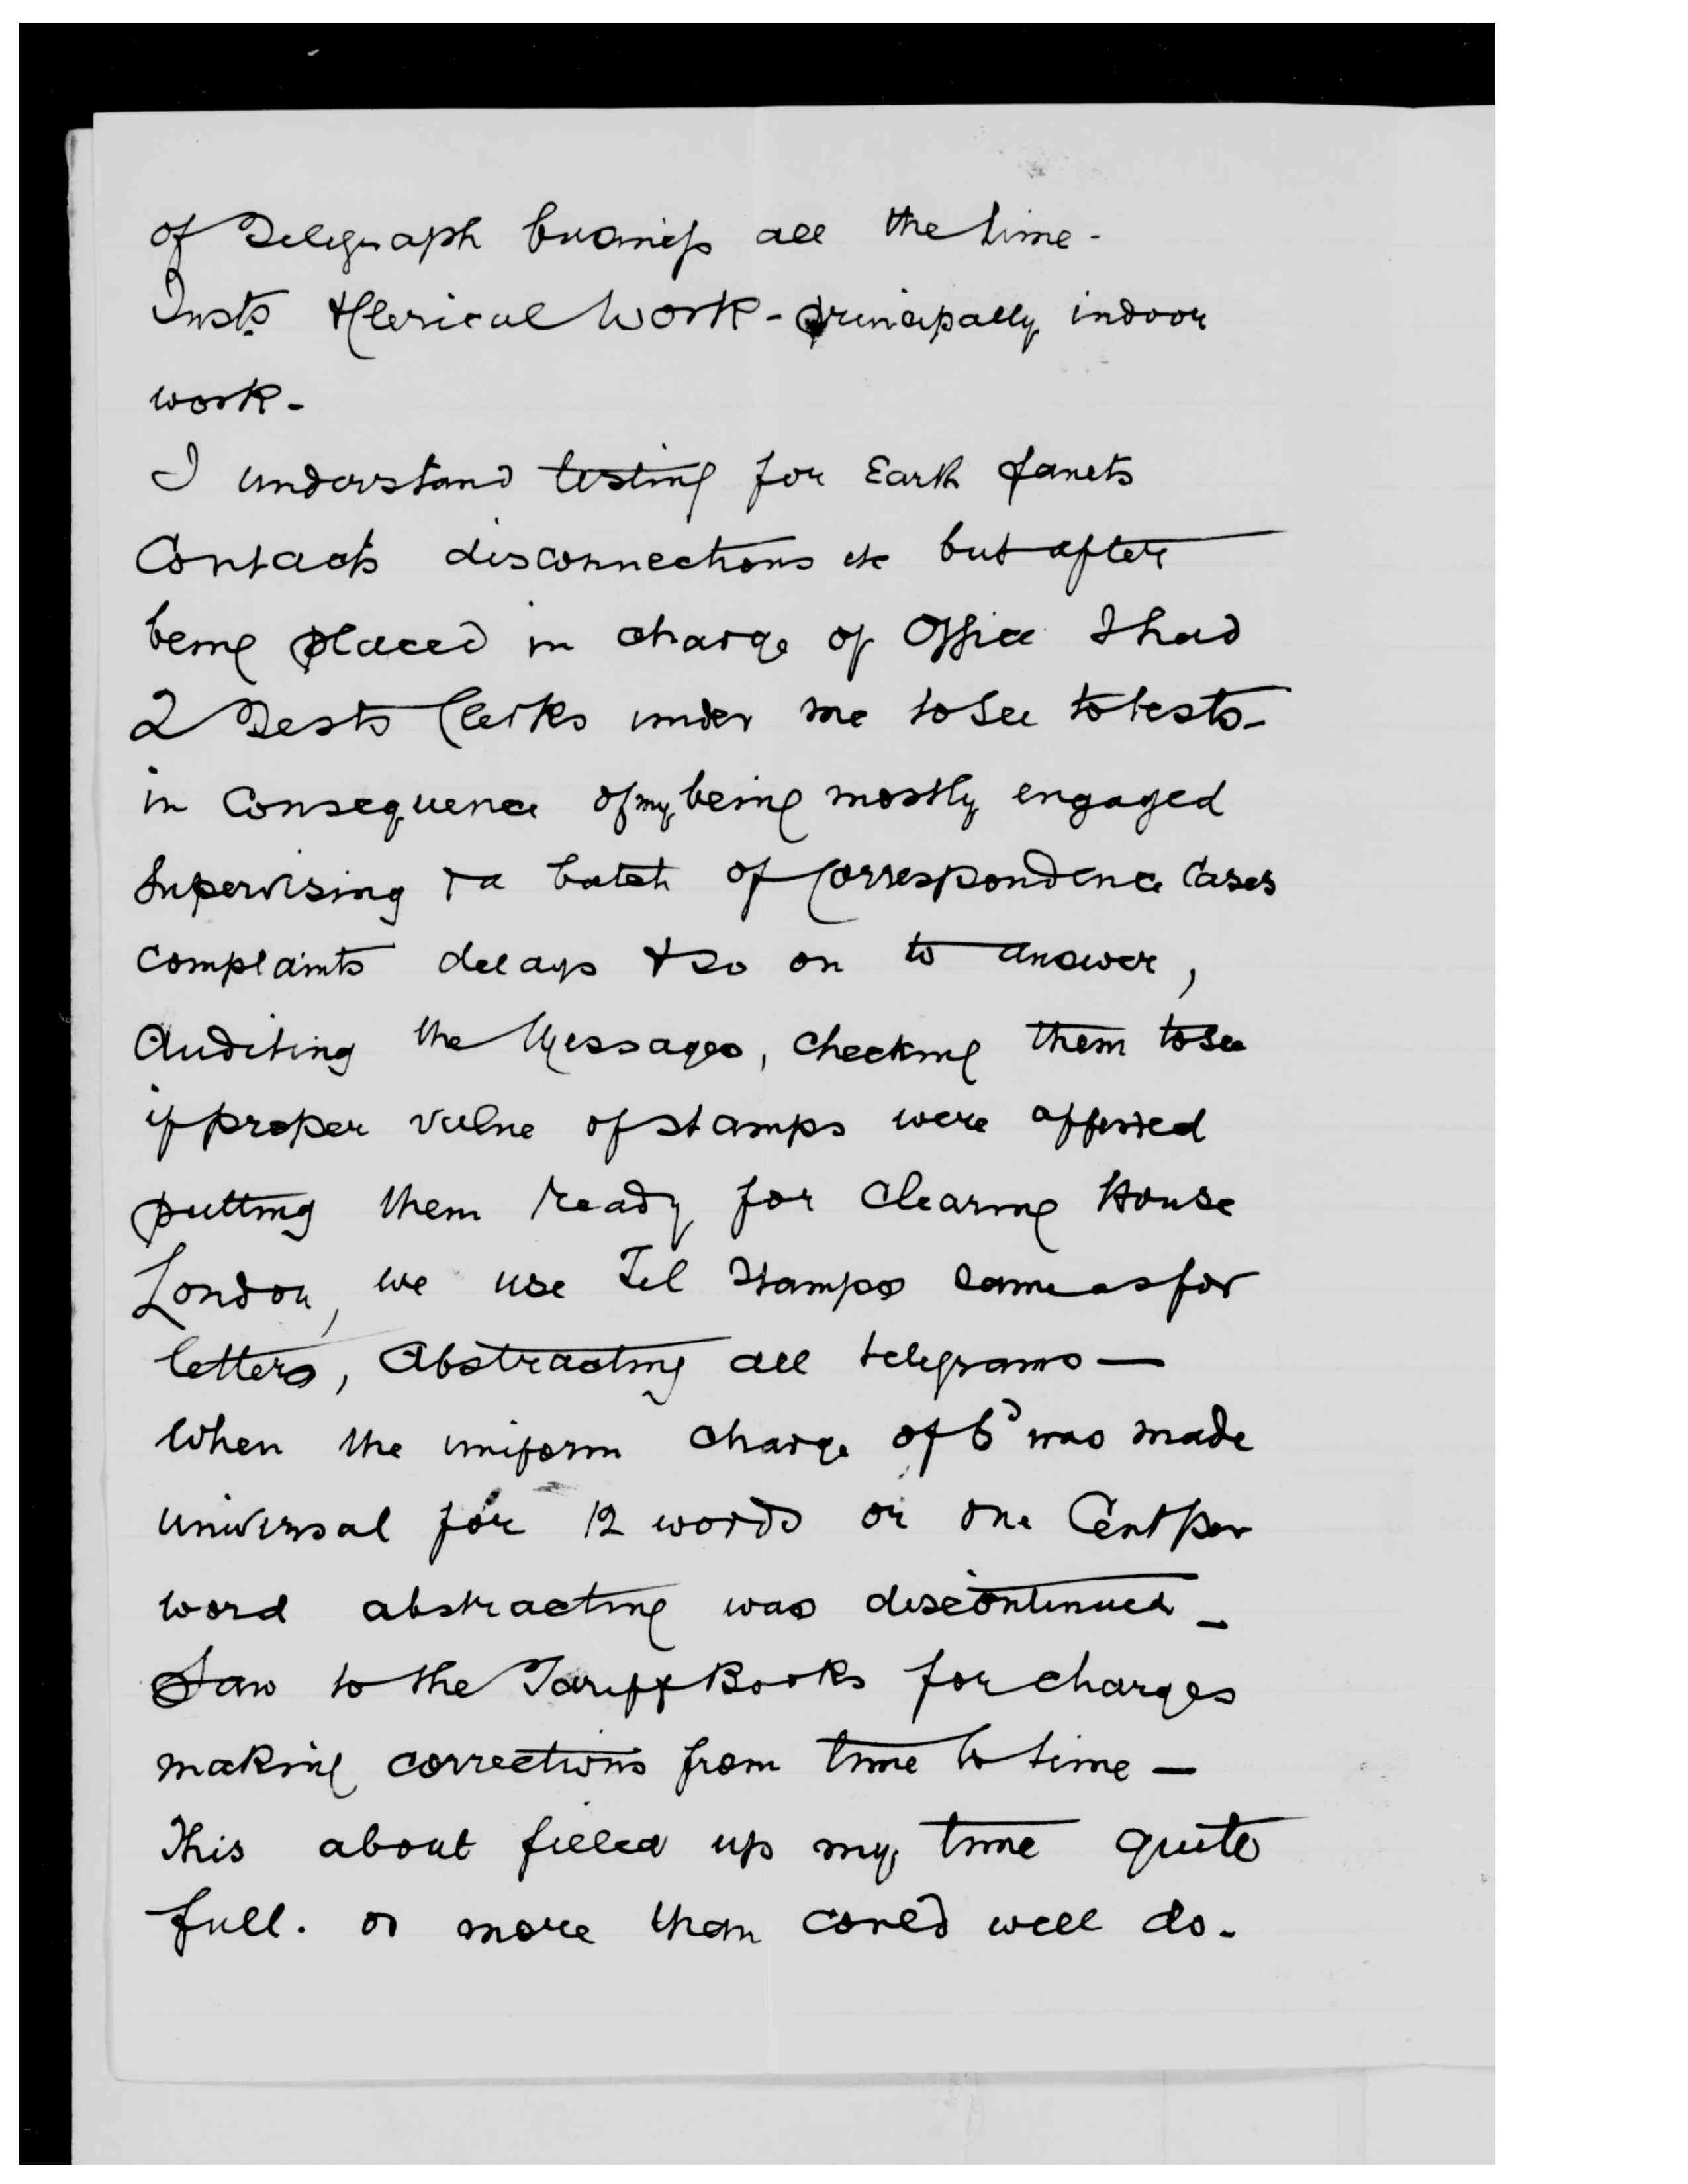 of Telegraph business all the time -
Insts & Clerical Work - principally indoor
work -
I understand testing for Earth faults
Contacts disconnections etc but after
being placed in charge of Office I had
2 Tests Clerks under me to see to tests -
in Consequence of my being mostly engaged
Supervising & a batch of Correspondence Cases
complaints delays & so on to answer,
Auditing the Messages, checking them to see
if proper value of stamps were affixed
putting them ready for Clearing House
London, we use Tel Stamps same as for
letters, Abstracting all telegrams —
When the uniform charge of 6d was made
universal for 12 words or one Cent per
word abstracting was discontinued -
Saw to the Tariff Books for charges
making corrections from time to time —
This about filled up my time quite
full. or more than could well do -